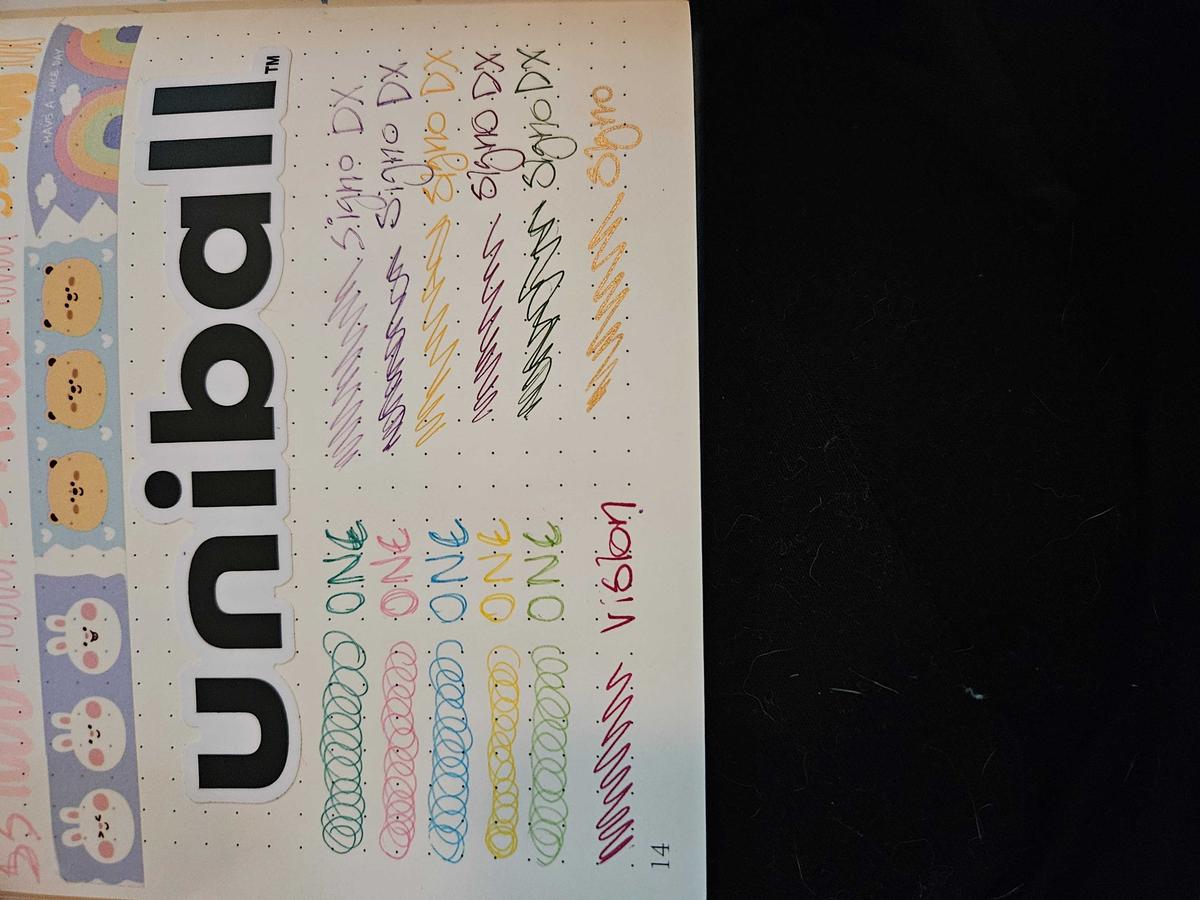 HAVE A NICE DAY
uniball™
ONE Signo DX
ONE Signo DX
ONE Signo DX
ONE Signo DX
ONE Signo DX
Vision Signo
14